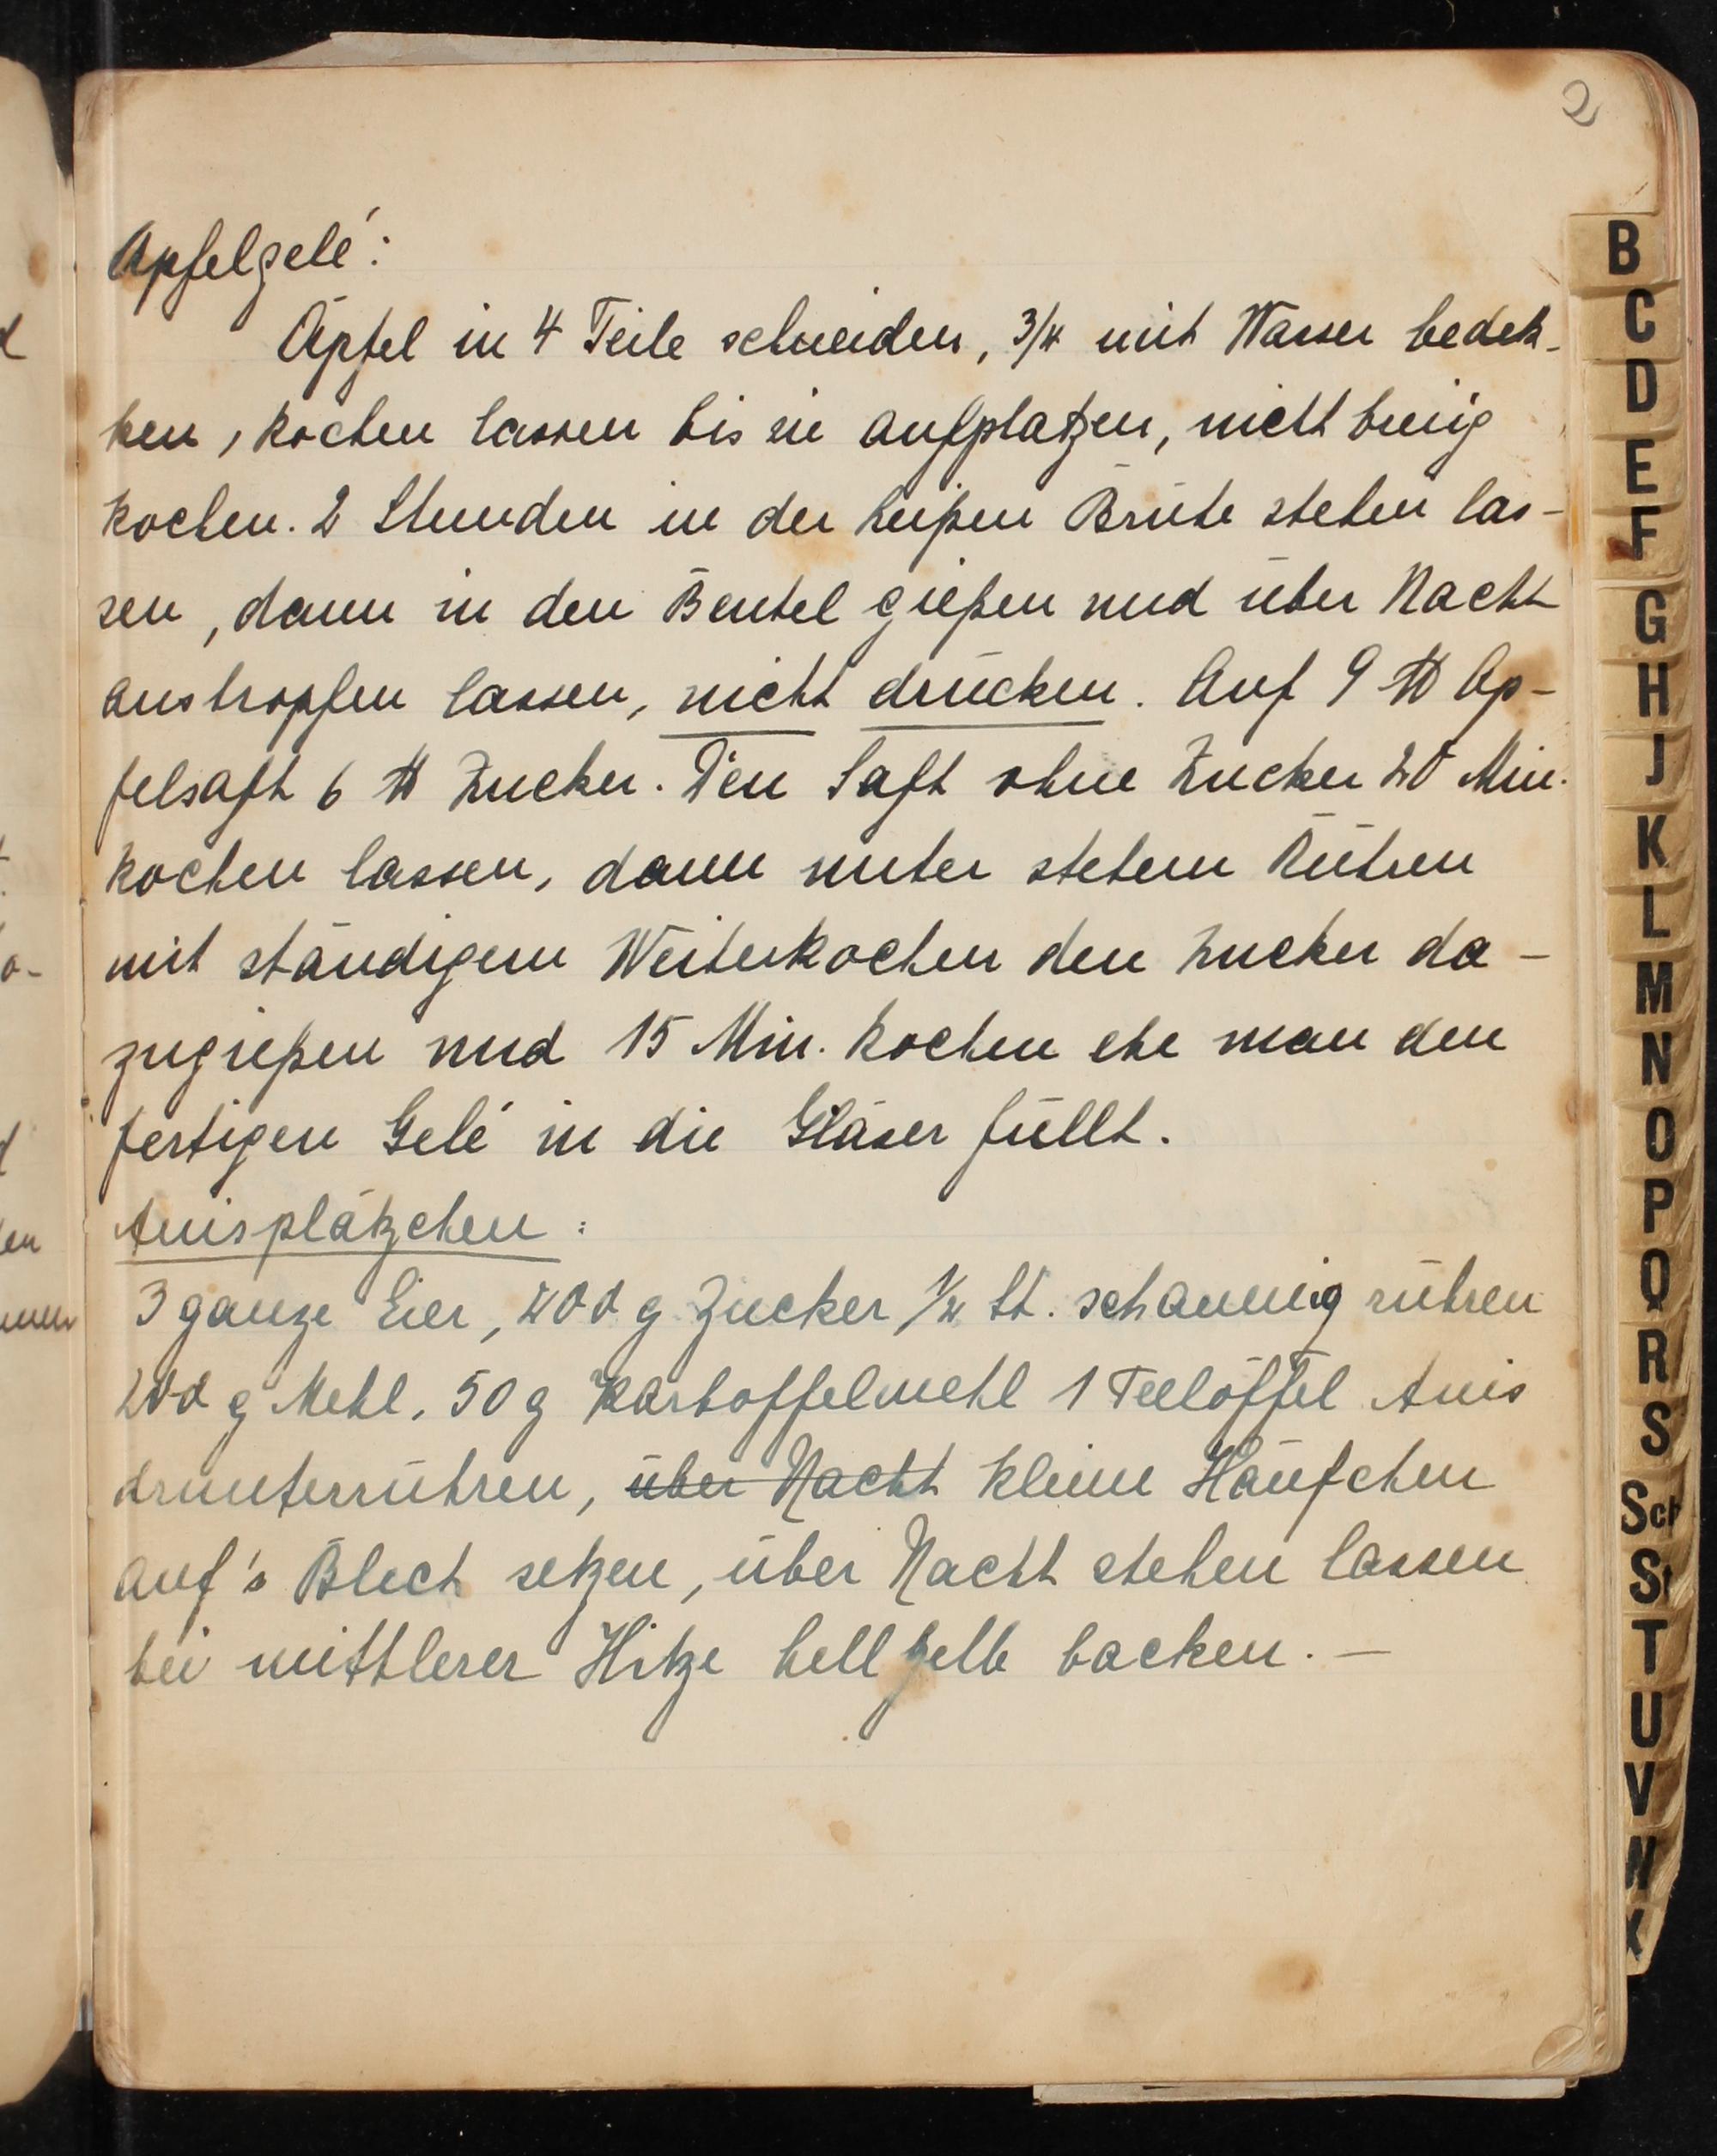 2
Apfelgelé:
Äpfel in 4 Teile schneiden, 3/4 mit Wasser bedek-
ken, kochen lassen bis sie aufplatzen, nicht breiig
kochen. 2 Stunden in der heißen Brühe stehen las-
sen, dann in den Beutel gießen und über Nacht
austropfen lassen, nicht drücken. Auf 9 ℔ Ap-
felsaft 6 ℔ Zucker. Den Saft ohne Zucker 20 Min.
kochen lassen, dann unter stetem Rühren
mit ständigem Weiterkochen den Zucker da-
zugießen und 15 Min. kochen ehe man den
fertigen Gelé in die Gläser füllt.
Anisplätzchen:
3 ganze Eier, 200 g Zucker 1/4 St. schaumig rühren
200 g Mehl, 50 g Kartoffelmehl 1 Teelöffel Anis
drunterrühren, über Nacht kleine Häufchen
auf's Blech setzen, über Nacht stehen lassen
bei mittlerer Hitze hellgelb backen. —
B
C
D
E
F
G
H
J
K
L
M
N
O
P
Q
R
S
Sch
St
T
U
V